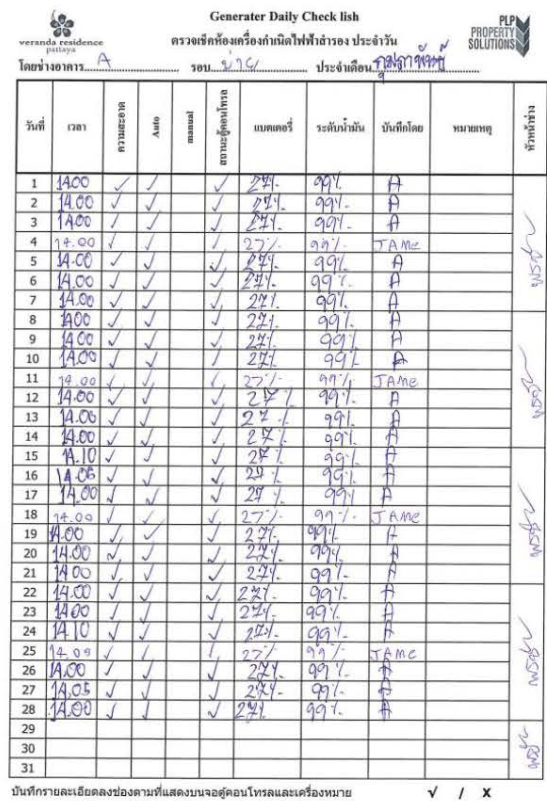 veranda residence
pattaya
Generater Daily Check lish
ตรวจเช็คห้องเครื่องกำเนิดไฟฟ้าสำรอง ประจำวัน
PLP
PROPERTY
SOLUTIONS
โดยช่างอาคาร A รอบ บ่าย ประจำเดือน กุมภาพันธ์
วันที่ เวลา ความสะอาด Auto manual สถานะตู้คอนโทรล แบตเตอรี่ ระดับน้ำมัน บันทึกโดย หมายเหตุ หัวหน้าช่าง
1 14.00 ✓ ✓ ✓ 27% 99% A
2 14.00 ✓ ✓ ✓ 27% 99% A
3 14.00 ✓ ✓ ✓ 27% 99% A
4 14.00 ✓ ✓ ✓ 27% 99% JAME
5 14.00 ✓ ✓ ✓ 27% 99% A
6 14.00 ✓ ✓ ✓ 27% 99% A
7 14.00 ✓ ✓ ✓ 27% 99% A
8 14.00 ✓ ✓ ✓ 27% 99% A
9 14.00 ✓ ✓ ✓ 27% 99% A
10 14.00 ✓ ✓ ✓ 27% 99% A
11 14.00 ✓ ✓ ✓ 27% 99% JAME
12 14.00 ✓ ✓ ✓ 27% 99% A
13 14.00 ✓ ✓ ✓ 27% 99% A
14 14.00 ✓ ✓ ✓ 27% 99% A
15 14.10 ✓ ✓ ✓ 27% 99% A
16 14.05 ✓ ✓ ✓ 27% 99% A
17 14.00 ✓ ✓ ✓ 27% 99% A
18 14.00 ✓ ✓ ✓ 27% 99% JAME
19 14.00 ✓ ✓ ✓ 27% 99% A
20 14.00 ✓ ✓ ✓ 27% 99% A
21 14.00 ✓ ✓ ✓ 27% 99% A
22 14.00 ✓ ✓ ✓ 27% 99% A
23 14.00 ✓ ✓ ✓ 27% 99% A
24 14.10 ✓ ✓ ✓ 27% 99% A
25 14.00 ✓ ✓ ✓ 27% 99% JAME
26 14.00 ✓ ✓ ✓ 27% 99% A
27 14.05 ✓ ✓ ✓ 27% 99% A
28 14.00 ✓ ✓ ✓ 27% 99% A
29
30
31
บันทึกรายละเอียดลงช่องตามที่แสดงบนจอตู้คอนโทรลและเครื่องหมาย √ / X